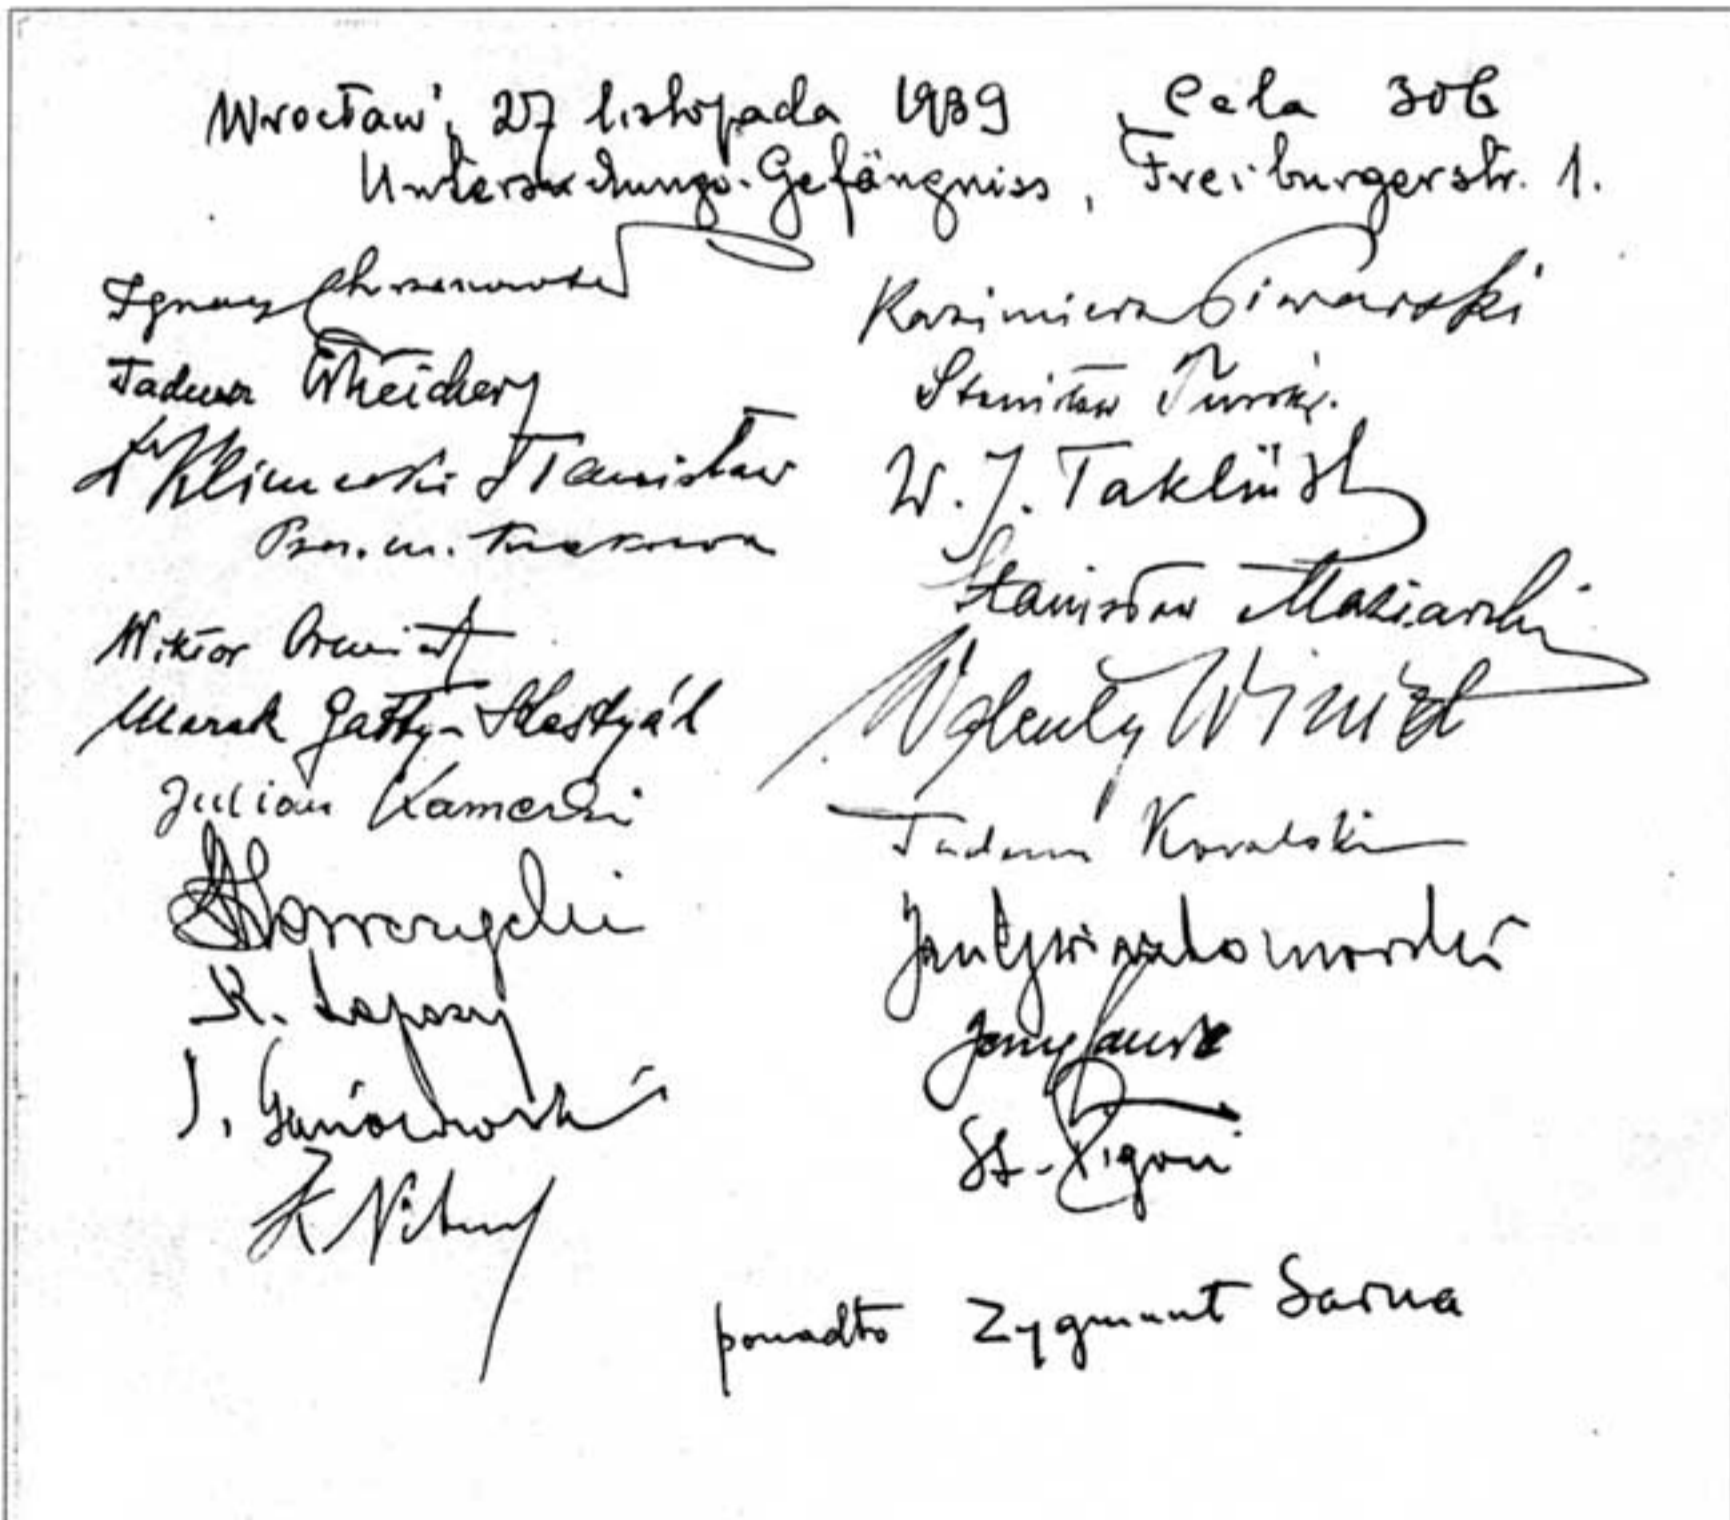 Wrocław, 27 listopada 1939, Cela 306
Untersuchungs-Gefängniss, Freiburgerstr. 1.
Ignacy Chrzanowski
Tadeusz Estreicher
Klimecki Stanisław
Wiktor Ormicki
Marek Gatty-Kostyál
Julian Kamecki
J. Gwiazdomorski
K. Nitsch
Kazimierz Piwarski
Stanisław Turski.
W. J. Takliński
Stanisław Maziarski
Walenty Winid
Tadeusz Kowalski
Jan Gwiazdomorski
Jerzy Lande
St. Pigoń
ponadto Zygmunt Sarna